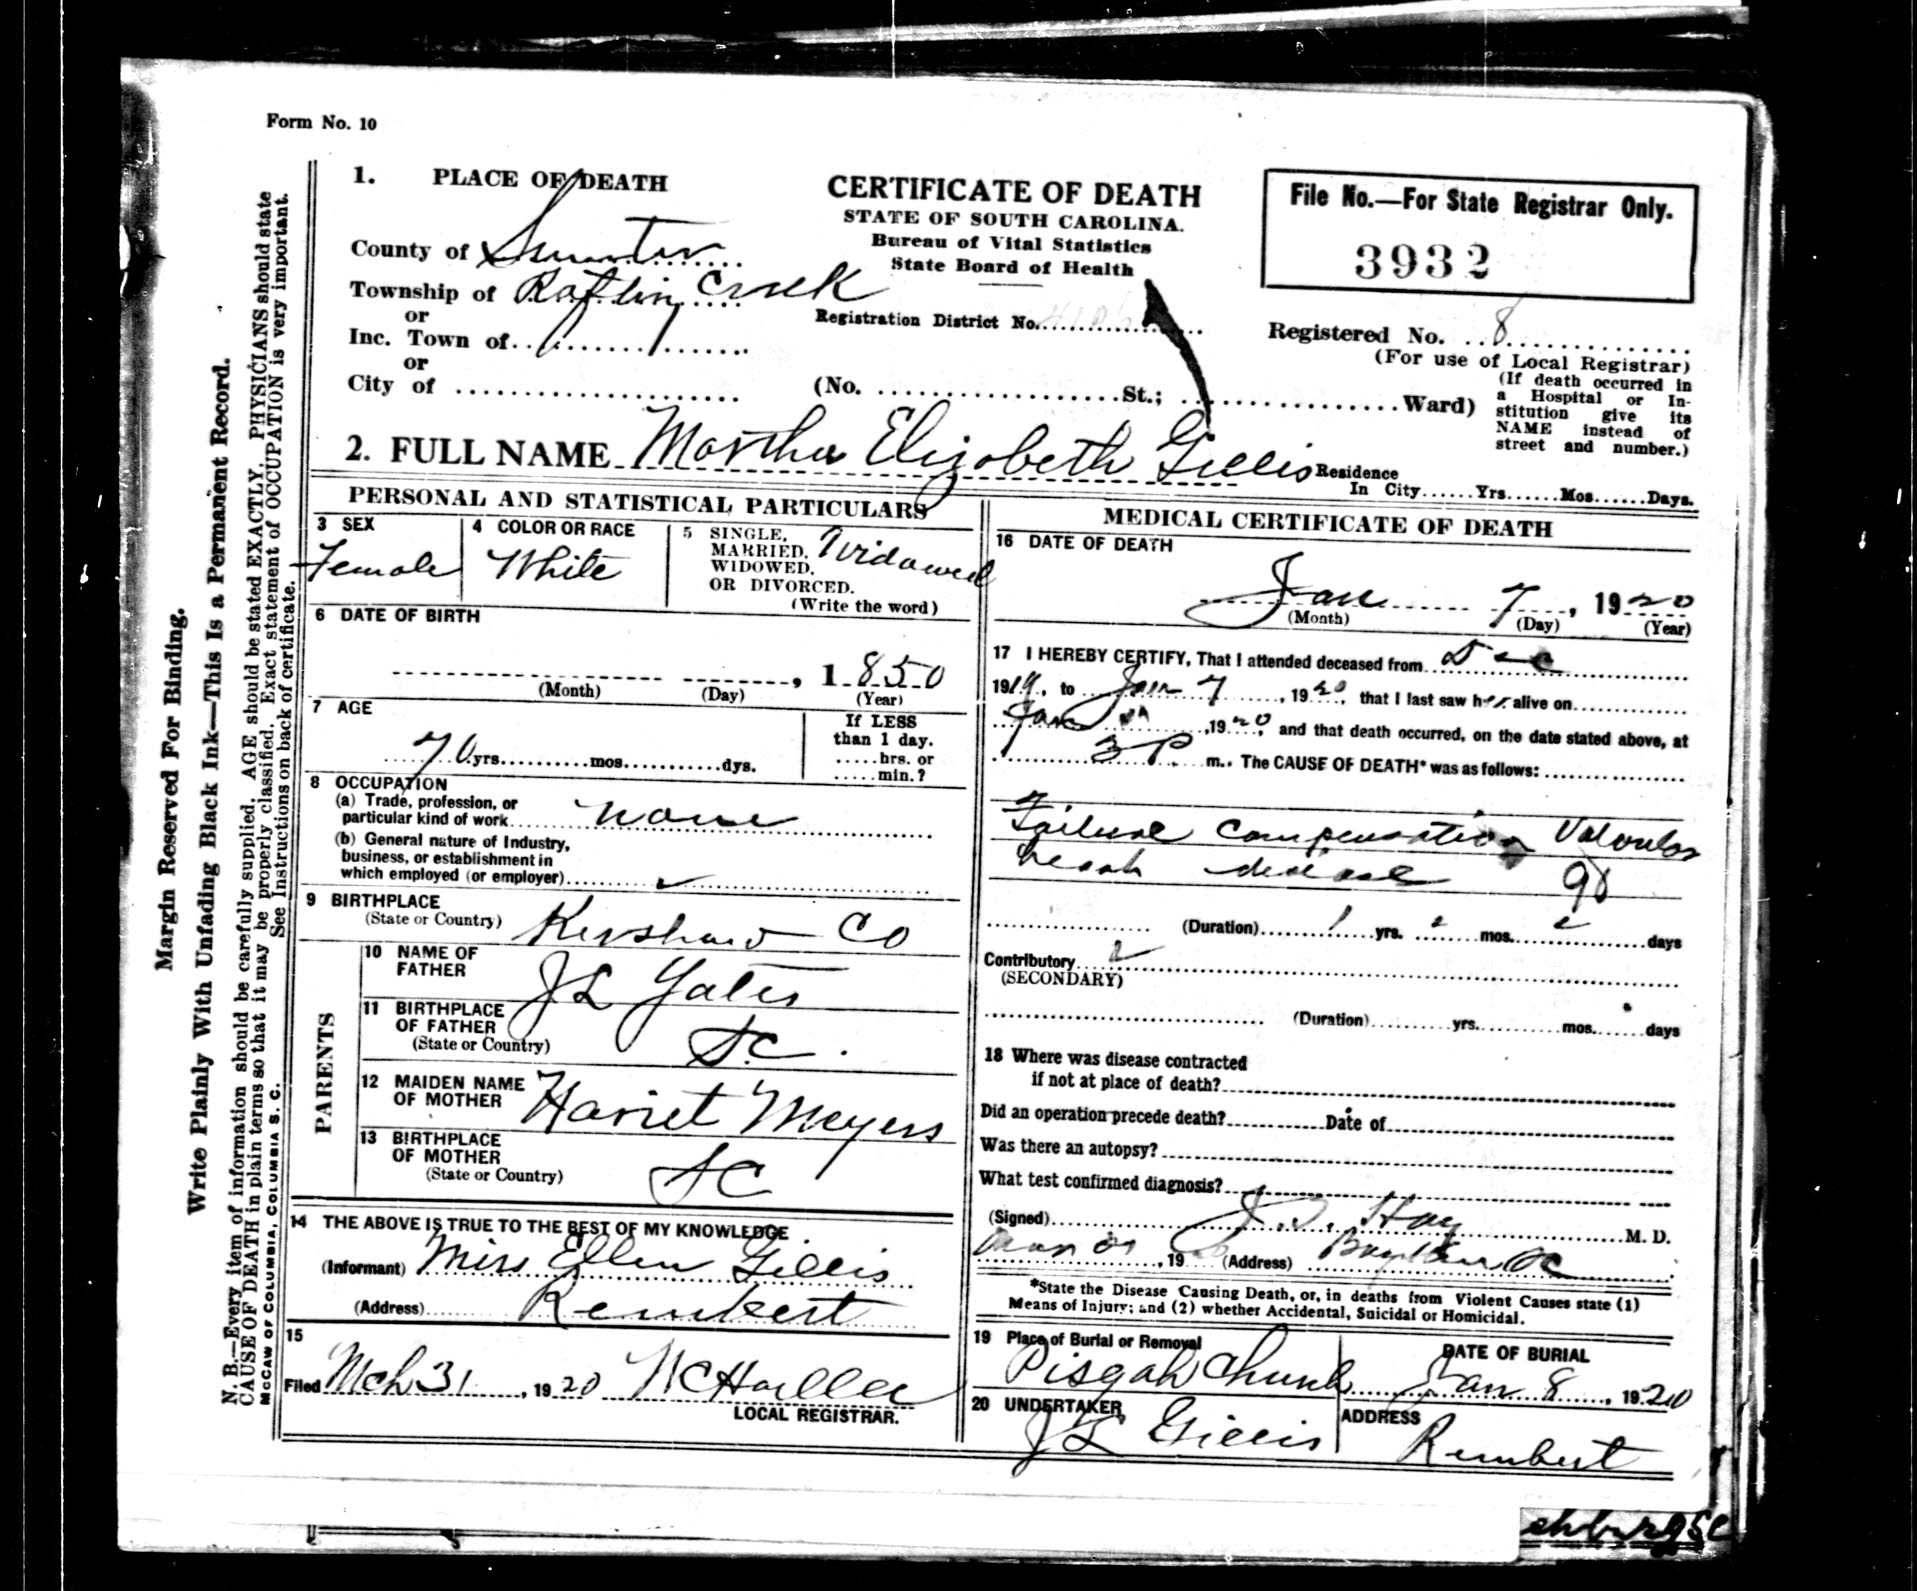 Form No. 10
1. PLACE OF DEATH
County of Sumter
Township of Raftin Creek
or
Inc. Town of
or
City of
CERTIFICATE OF DEATH
STATE OF SOUTH CAROLINA.
Bureau of Vital Statistics
State Board of Health
Registration District No.
(No. St.; Ward)
File No.—For State Registrar Only.
3932
Registered No. 8
(For use of Local Registrar)
(If death occurred in
a Hospital or In-
stitution give its
NAME instead of
street and number.)
2. FULL NAME Martha Elizabeth Gillis
Residence
In City Yrs. Mos. Days.
PERSONAL AND STATISTICAL PARTICULARS
3 SEX
Female
4 COLOR OR RACE
White
5 SINGLE,
MARRIED,
WIDOWED,
OR DIVORCED.
(Write the word)
Widowed
6 DATE OF BIRTH
, 1850
(Month) (Day) (Year)
7 AGE
70 yrs. mos. dys.
If LESS
than 1 day.
hrs. or
min.?
8 OCCUPATION
(a) Trade, profession, or
particular kind of work none
(b) General nature of Industry,
business, or establishment in
which employed (or employer)
9 BIRTHPLACE
(State or Country) Kershaw Co
PARENTS
10 NAME OF
FATHER
J L Yates
11 BIRTHPLACE
OF FATHER
(State or Country)
S.C.
12 MAIDEN NAME
OF MOTHER
Hariet Meyers
13 BIRTHPLACE
OF MOTHER
(State or Country)
SC
14 THE ABOVE IS TRUE TO THE BEST OF MY KNOWLEDGE
(Informant) Miss Ellen Gillis
(Address) Rembert
15
Filed Mch 31, 1920
LOCAL REGISTRAR.
MEDICAL CERTIFICATE OF DEATH
16 DATE OF DEATH
Jan 7, 1920
(Month) (Day) (Year)
17 I HEREBY CERTIFY, That I attended deceased from Dec
1919, to Jan 7, 1920, that I last saw her alive on
Jan, 1920, and that death occurred, on the date stated above, at
3 P. m. The CAUSE OF DEATH* was as follows:
Failure compensation Valvular
heart disease 90
(Duration) 1 yrs. 2 mos. 2 days
Contributory
(SECONDARY)
(Duration) yrs. mos. days
18 Where was disease contracted
if not at place of death?
Did an operation precede death? Date of
Was there an autopsy?
What test confirmed diagnosis?
(Signed) M. D.
, 19 (Address)
*State the Disease Causing Death, or, in deaths from Violent Causes state (1)
Means of Injury; and (2) whether Accidental, Suicidal or Homicidal.
19 Place of Burial or Removal
Pisgah Church
DATE OF BURIAL
Jan 8, 1920
20 UNDERTAKER
J L Gillis
ADDRESS
Rembert
Margin Reserved For Binding.
Write Plainly With Unfading Black Ink—This Is a Permanent Record.
N. B.—Every item of information should be carefully supplied. AGE should be stated EXACTLY. PHYSICIANS should state
CAUSE OF DEATH in plain terms so that it may be properly classified. Exact statement of OCCUPATION is very important.
See Instructions on back of certificate.
McCAW OF COLUMBIA, COLUMBIA S. C.